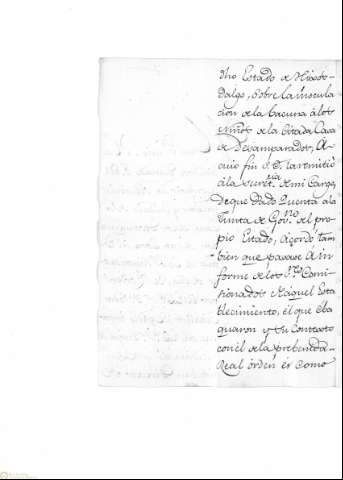 dho Estado de Hixos-
dalgo, sobre la inocula
cion de la bacuna á los
niños de la Citada Casa
de Desamparados, Á
cuio fin S. E. la remitió
á la Secret.ria de mi Cargo,
de que Dado Quenta á la
Junta de Gov.no del pro-
pio Estado, Acordó tam
bien que pasase Á in
forme de los S.res Comi
sionados de aquel Esta
blecimiento, él que eba
quaron y su Contexto
con él de la prebenida
Real órden es Como